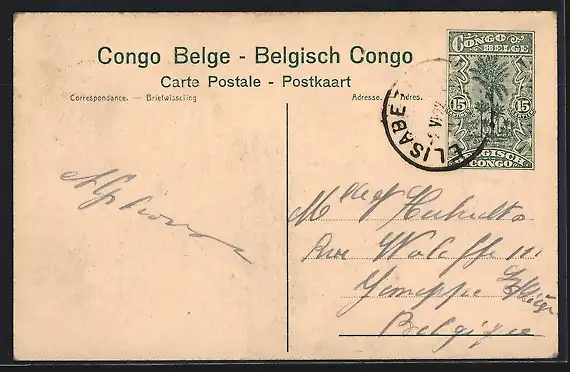 Congo Belge - Belgisch Congo
Carte Postale - Postkaart
Correspondance. — Briefwissling
Adresse. Adres.
CONGO
BELGE
15 15
BELGISCH
CONGO
ELISABE
Alphonse
Rue
Jemeppe
Belgique